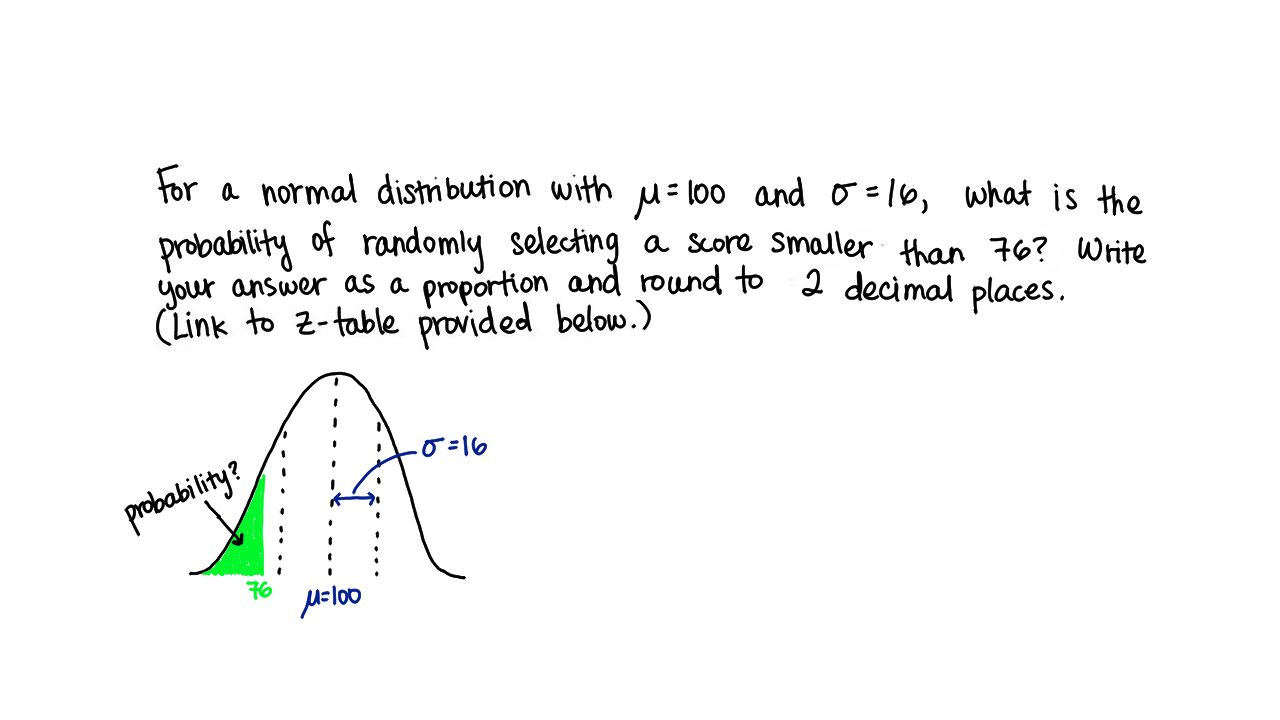 For a normal distribution with μ=100 and σ=16, what is the
probability of randomly selecting a score smaller than 76? Write
your answer as a proportion and round to 2 decimal places.
(Link to z-table provided below.)
σ=16
probability?
76
μ=100